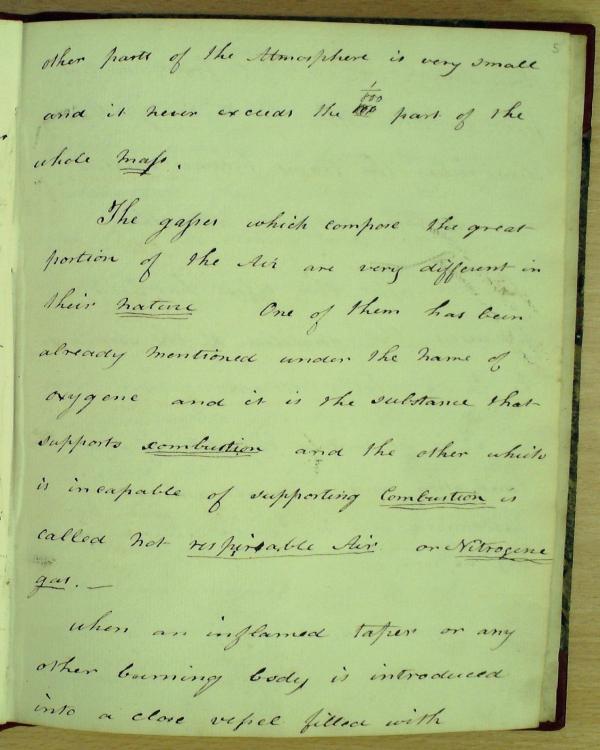 5
other parts of the Atmosphere is very small
and it never exceeds the 1/1000 part of the
whole mass.
The gasses which compose the great
portion of the Air are very different in
their nature One of them has been
already mentioned under the name of
oxygene and it is the substance that
supports combustion and the other which
is incapable of supporting Combustion is
called not respirable Air or Nitrogene
gas. —
when an inflamed taper or any
other burning body is introduced
into a close vessel filled with